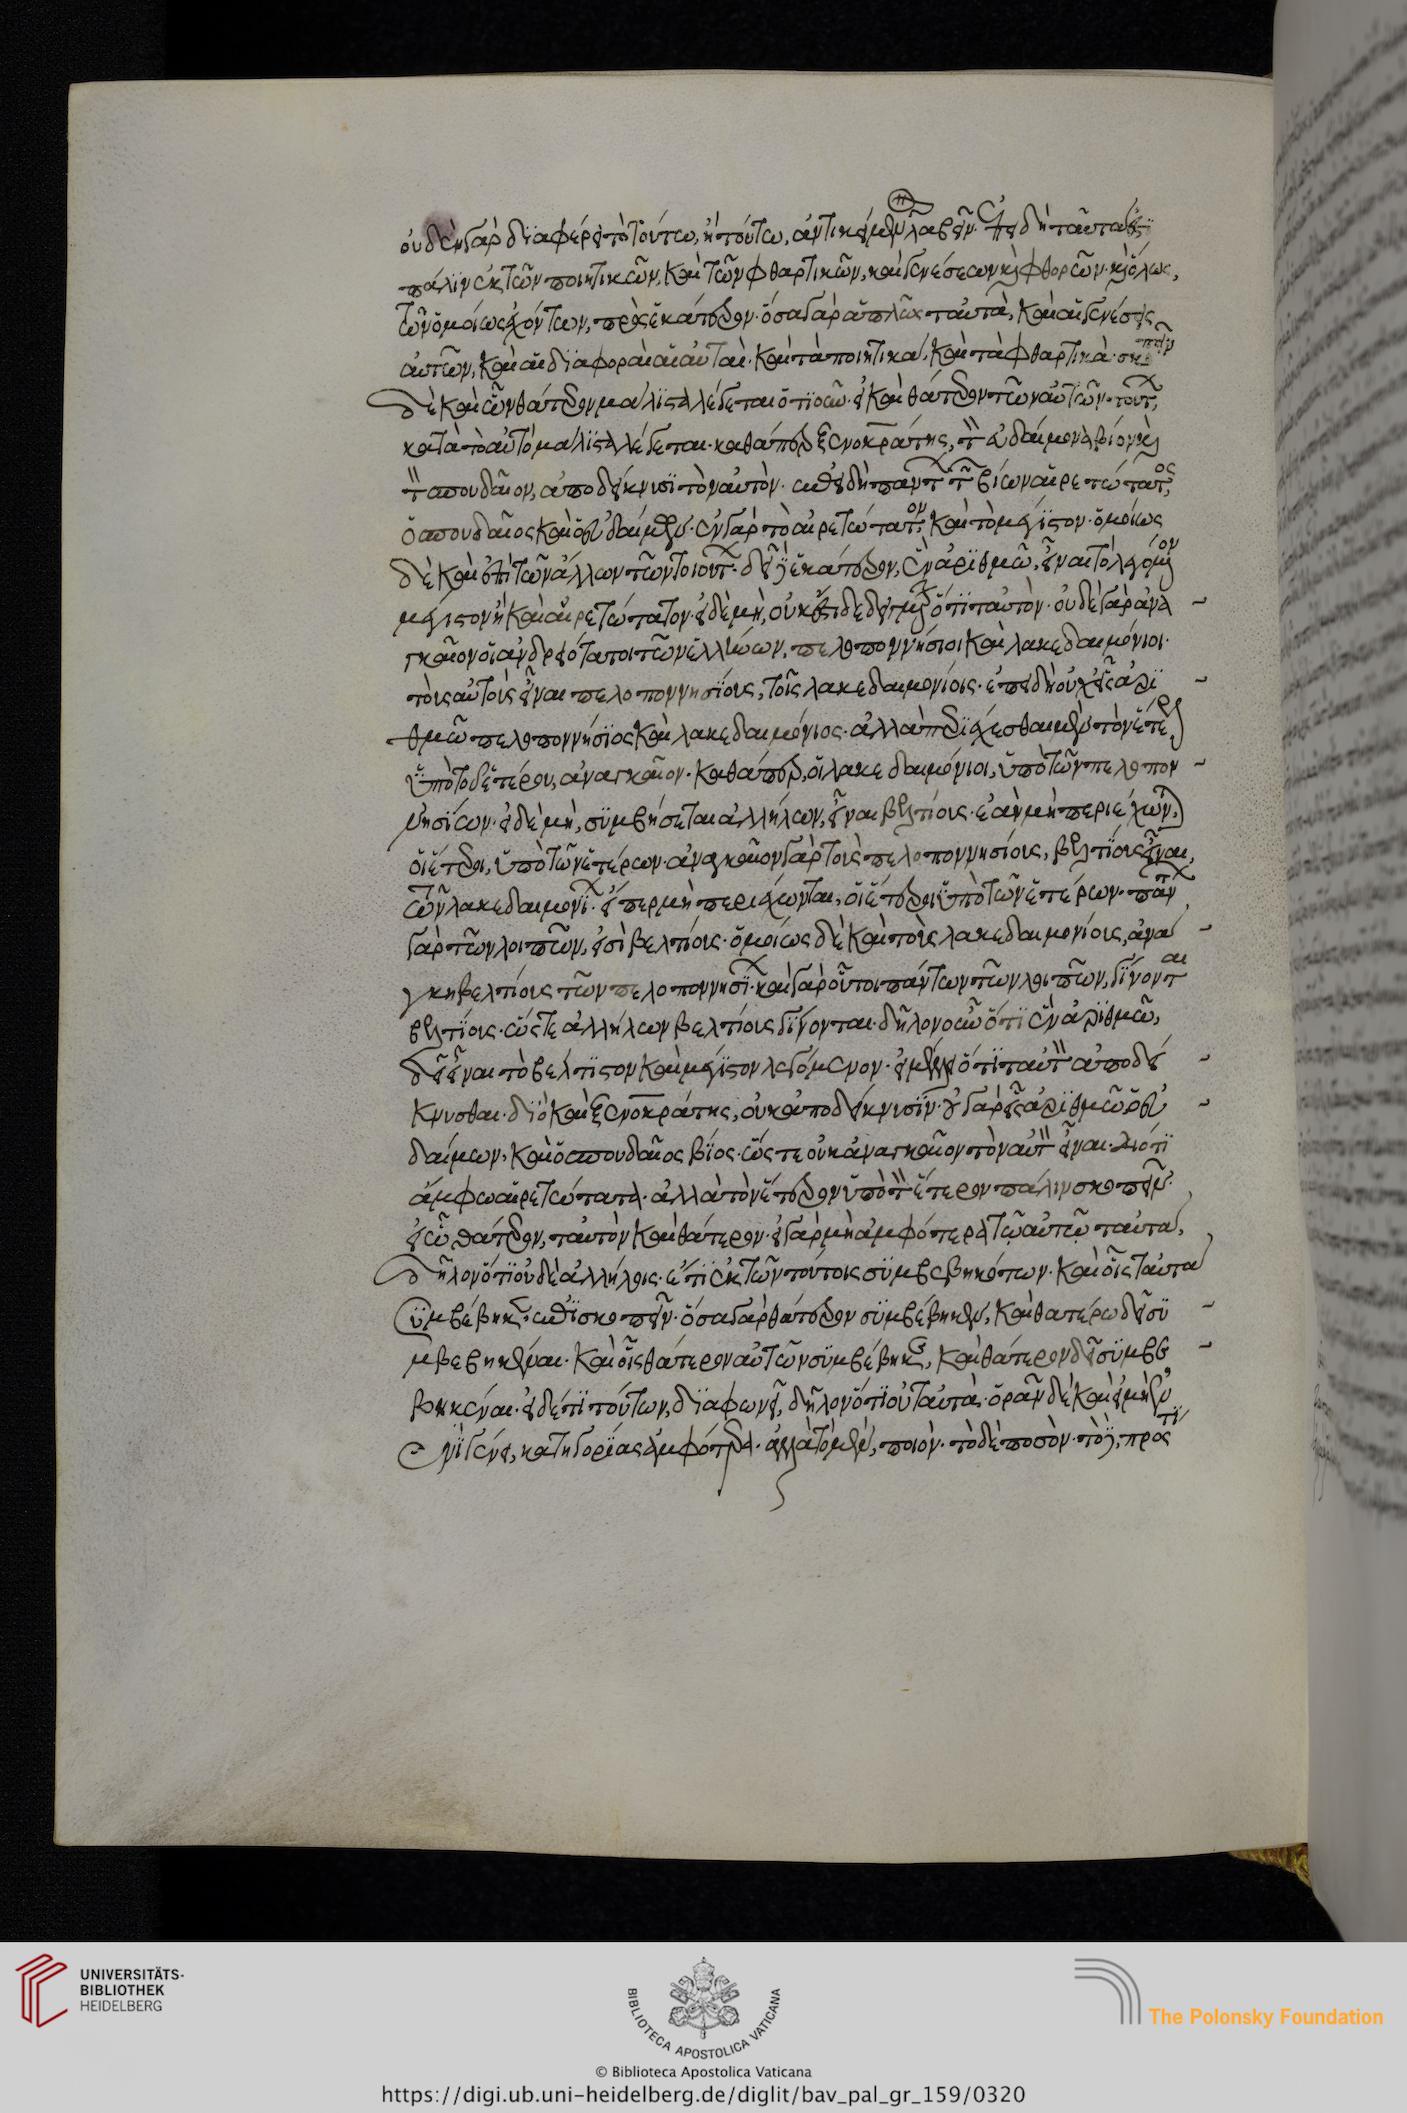 οὐδὲν γὰρ διαφέρει τὸ τούτω, ἢ τούτω, ἀντικείμενον λαβεῖν. ἐπειδὴ ταῦτα ἐστὶ
πάλιν ἐκ τῶν ποιητικῶν, καὶ τῶν φθαρτικῶν, καὶ γενέσεων καὶ φθορῶν. καὶ ὅλως,
τῶν ὁμοίως ἐχόντων, πρὸς ἑκάτερον. ὅσα γὰρ ἁπλῶς ταὐτὰ, καὶ αἱ γενέσεις
αὐτῶν, καὶ αἱ διαφοραὶ αἱ αὐταὶ. καὶ τὰ ποιητικὰ, καὶ τὰ φθαρτικὰ. σκοπεῖν
δὲ καὶ ὧν θάτερον μάλιστα λέγεται ὁτιοῦν. εἰ καὶ θάτερον τῶν αὐτῶν τούτων,
κατὰ τὸ αὐτὸ μάλιστα λέγεται. καθάπερ ξενοκράτης, τὸν εὐδαίμονα βίον καὶ
τὸν σπουδαῖον, ἀποδείκνυσι τὸν αὐτὸν. ἐπειδὴ πάντων τῶν βίων αἱρετώτατος,
ὁ σπουδαῖος καὶ ὁ εὐδαίμων. ἓν γὰρ τὸ αἱρετώτατον, καὶ τὸ μέγιστον. ὁμοίως
δὲ καὶ ἐπὶ τῶν ἄλλων τῶν τοιούτων. δεῖ δὲ ἑκάτερον, ἓν ἀριθμῶ, εἶναι τὸ λεγόμενον
μέγιστον ἢ καὶ αἱρετώτατον. εἰ δὲ μὴ, οὐκ ἔσται δεδειγμένον ὅτι ταὐτὸν. οὐδὲ γὰρ ἀνα
γκαῖον οἱ ἀνδρειότατοι τῶν ἑλλήνων, πελοποννήσιοι καὶ λακεδαιμόνιοι.
τοὺς αὐτοὺς εἶναι πελοποννησίους, τοῖς λακεδαιμονίοις. ἐπειδὴ οὐχ εἷς ἀρι
θμῶ πελοποννήσιος καὶ λακεδαιμόνιος. ἀλλὰ περιέχεσθαι μὲν τὸν ἕτερον
ὑπὸ τοῦ ἑτέρου, ἀναγκαῖον. καθάπερ, οἱ λακεδαιμόνιοι, ὑπὸ τῶν πελοπον
νησίων. εἰ δὲ μὴ, συμβήσεται ἀλλήλων, εἶναι βελτίους. ἐὰν μὴ περιέχωνται
οἱ ἕτεροι, ὑπὸ τῶν ἑτέρων. ἀναγκαῖον γὰρ τοὺς πελοποννησίους, βελτίους εἶναι,
τῶν λακεδαιμονίων. εἴπερ μὴ περιέχωνται, οἱ ἕτεροι ὑπὸ τῶν ἑτέρων. πάντων
γὰρ τῶν λοιπῶν, εἰσὶ βελτίους. ὁμοίως δὲ καὶ τοὺς λακεδαιμονίους, ἀνά
γκη βελτίους τῶν πελοποννησίων. καὶ γὰρ οὗτοι πάντων τῶν λοιπῶν, γίνονται
βελτίους. ὥστε ἀλλήλων βελτίους γίνονται. δῆλον οὖν ὅτι ἓν ἀριθμῶ,
δεῖ εἶναι τὸ βέλτιστον καὶ μέγιστον λεγόμενον. εἰ μέλλει ὅτι ταὐτὸν ἀποδεί
κνυσθαι. διὸ καὶ ξενοκράτης, οὐκ ἀποδείκνυσιν. οὐ γὰρ εἷς ἀριθμῶ ὁ εὐ
δαίμων, καὶ ὁ σπουδαῖος βίος. ὥστε οὐκ ἀναγκαῖον τὸν αὐτὸν εἶναι. διότι
ἄμφω αἱρετώτατα. ἀλλὰ τὸν ἕτερον ὑπὸ τὸν ἕτερον πάλιν σκοπεῖν.
εἰ ὧ θάτερον, ταὐτὸν καὶ θάτερον. εἰ γὰρ μὴ ἀμφότερα τῷ αὐτῷ ταὐτὰ,
δῆλον ὅτι οὐδὲ ἀλλήλοις. ἔτι ἐκ τῶν τούτοις συμβεβηκότων. καὶ οἷς ταῦτα
συμβέβηκεν, ἐπισκοπεῖν. ὅσα γὰρ θάτερον συμβέβηκεν, καὶ θατέρω δεῖ συ
μβεβηκέναι. καὶ οἷς θάτερον αὐτῶν συμβέβηκεν, καὶ θάτερον δεῖ συμβε
βηκέναι. εἰ δέ τι τούτων, διαφωνεῖ, δῆλον ὅτι οὐ ταὐτὰ. ὁρᾶν δὲ καὶ εἰ μὴ ἐν
ἑνὶ γένει, κατηγορίας ἀμφότερα. ἀλλὰ τὸ μὲν, ποιὸν. τὸ δὲ ποσὸν. τὸ δὲ, πρός τι
UNIVERSITÄTS-
BIBLIOTHEK
HEIDELBERG
BIBLIOTECA APOSTOLICA VATICANA
The Polonsky Foundation
© Biblioteca Apostolica Vaticana
https://digi.ub.uni-heidelberg.de/diglit/bav_pal_gr_159/0320